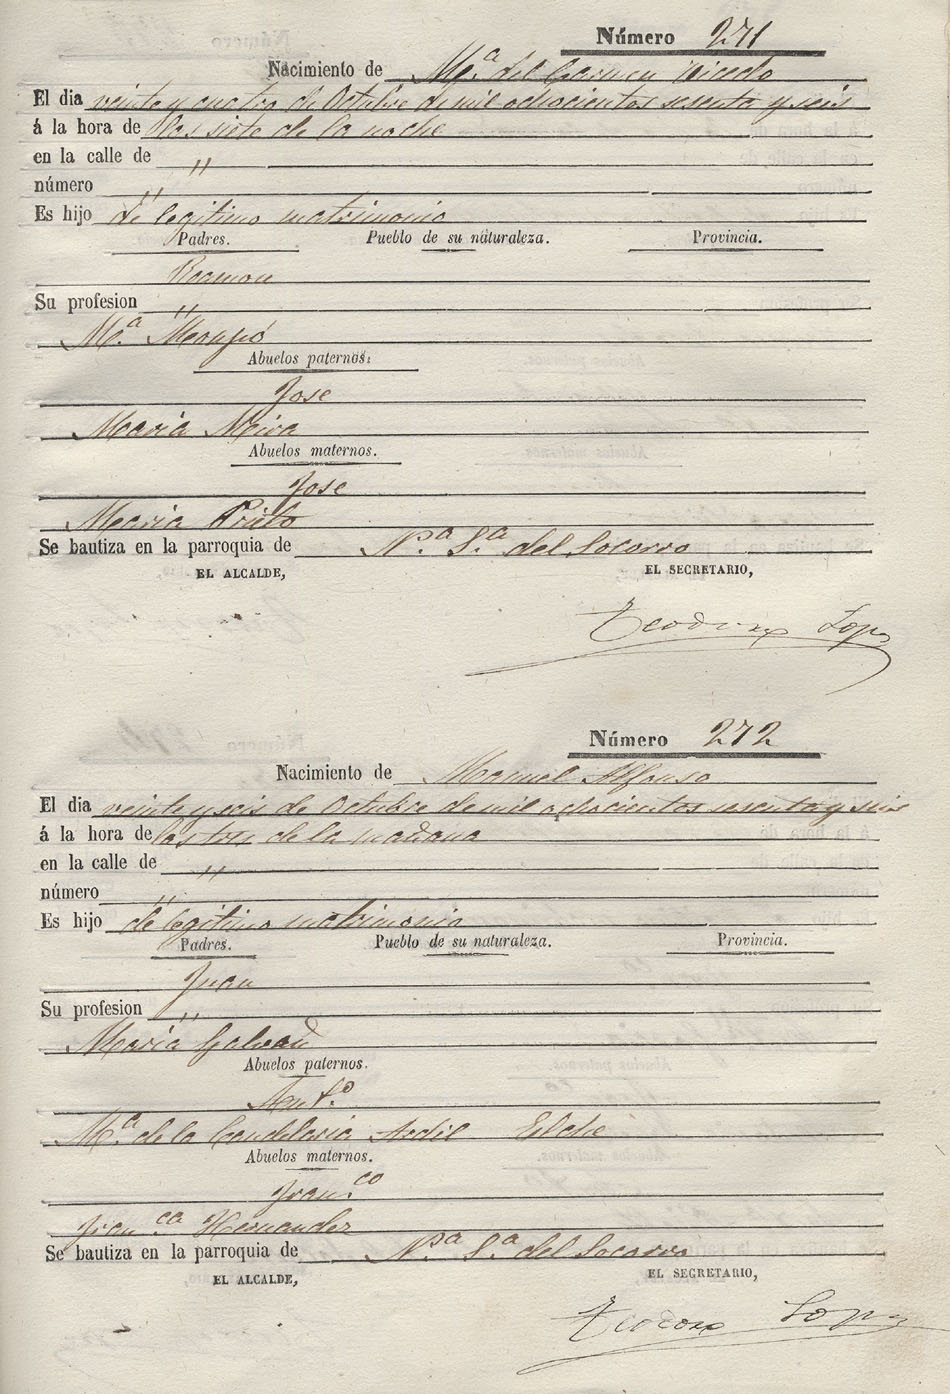 Número 271
Nacimiento de Mª del Carmen Vicedo
El dia veinte y cuatro de Octubre de mil ochocientos sesenta y seis
á la hora de las siete de la noche
en la calle de "
número "
Es hijo de legitimo matrimonio
Padres. Pueblo de su naturaleza. Provincia.
Ramon
Su profesion "
Mª
Abuelos paternos:
Jose
Maria Mira
Abuelos maternos.
Jose
Maria Prieto
Se bautiza en la parroquia de Nª Sª del Socorro
EL ALCALDE, EL SECRETARIO,
Teodoro Lopez
Número 272
Nacimiento de Manuel Alfonso
El dia veinte y seis de Octubre de mil ochocientos sesenta y seis
á la hora de las tres de la mañana
en la calle de "
número "
Es hijo de legitimo matrimonio
Padres. Pueblo de su naturaleza. Provincia.
Juan
Su profesion "
Maria Galvañ
Abuelos paternos.
Antº
Mª de la Candelaria Ardil Elche
Abuelos maternos.
Franco
Franca Hernandez
Se bautiza en la parroquia de Nª Sª del Socorro
EL ALCALDE, EL SECRETARIO,
Teodoro Lopez